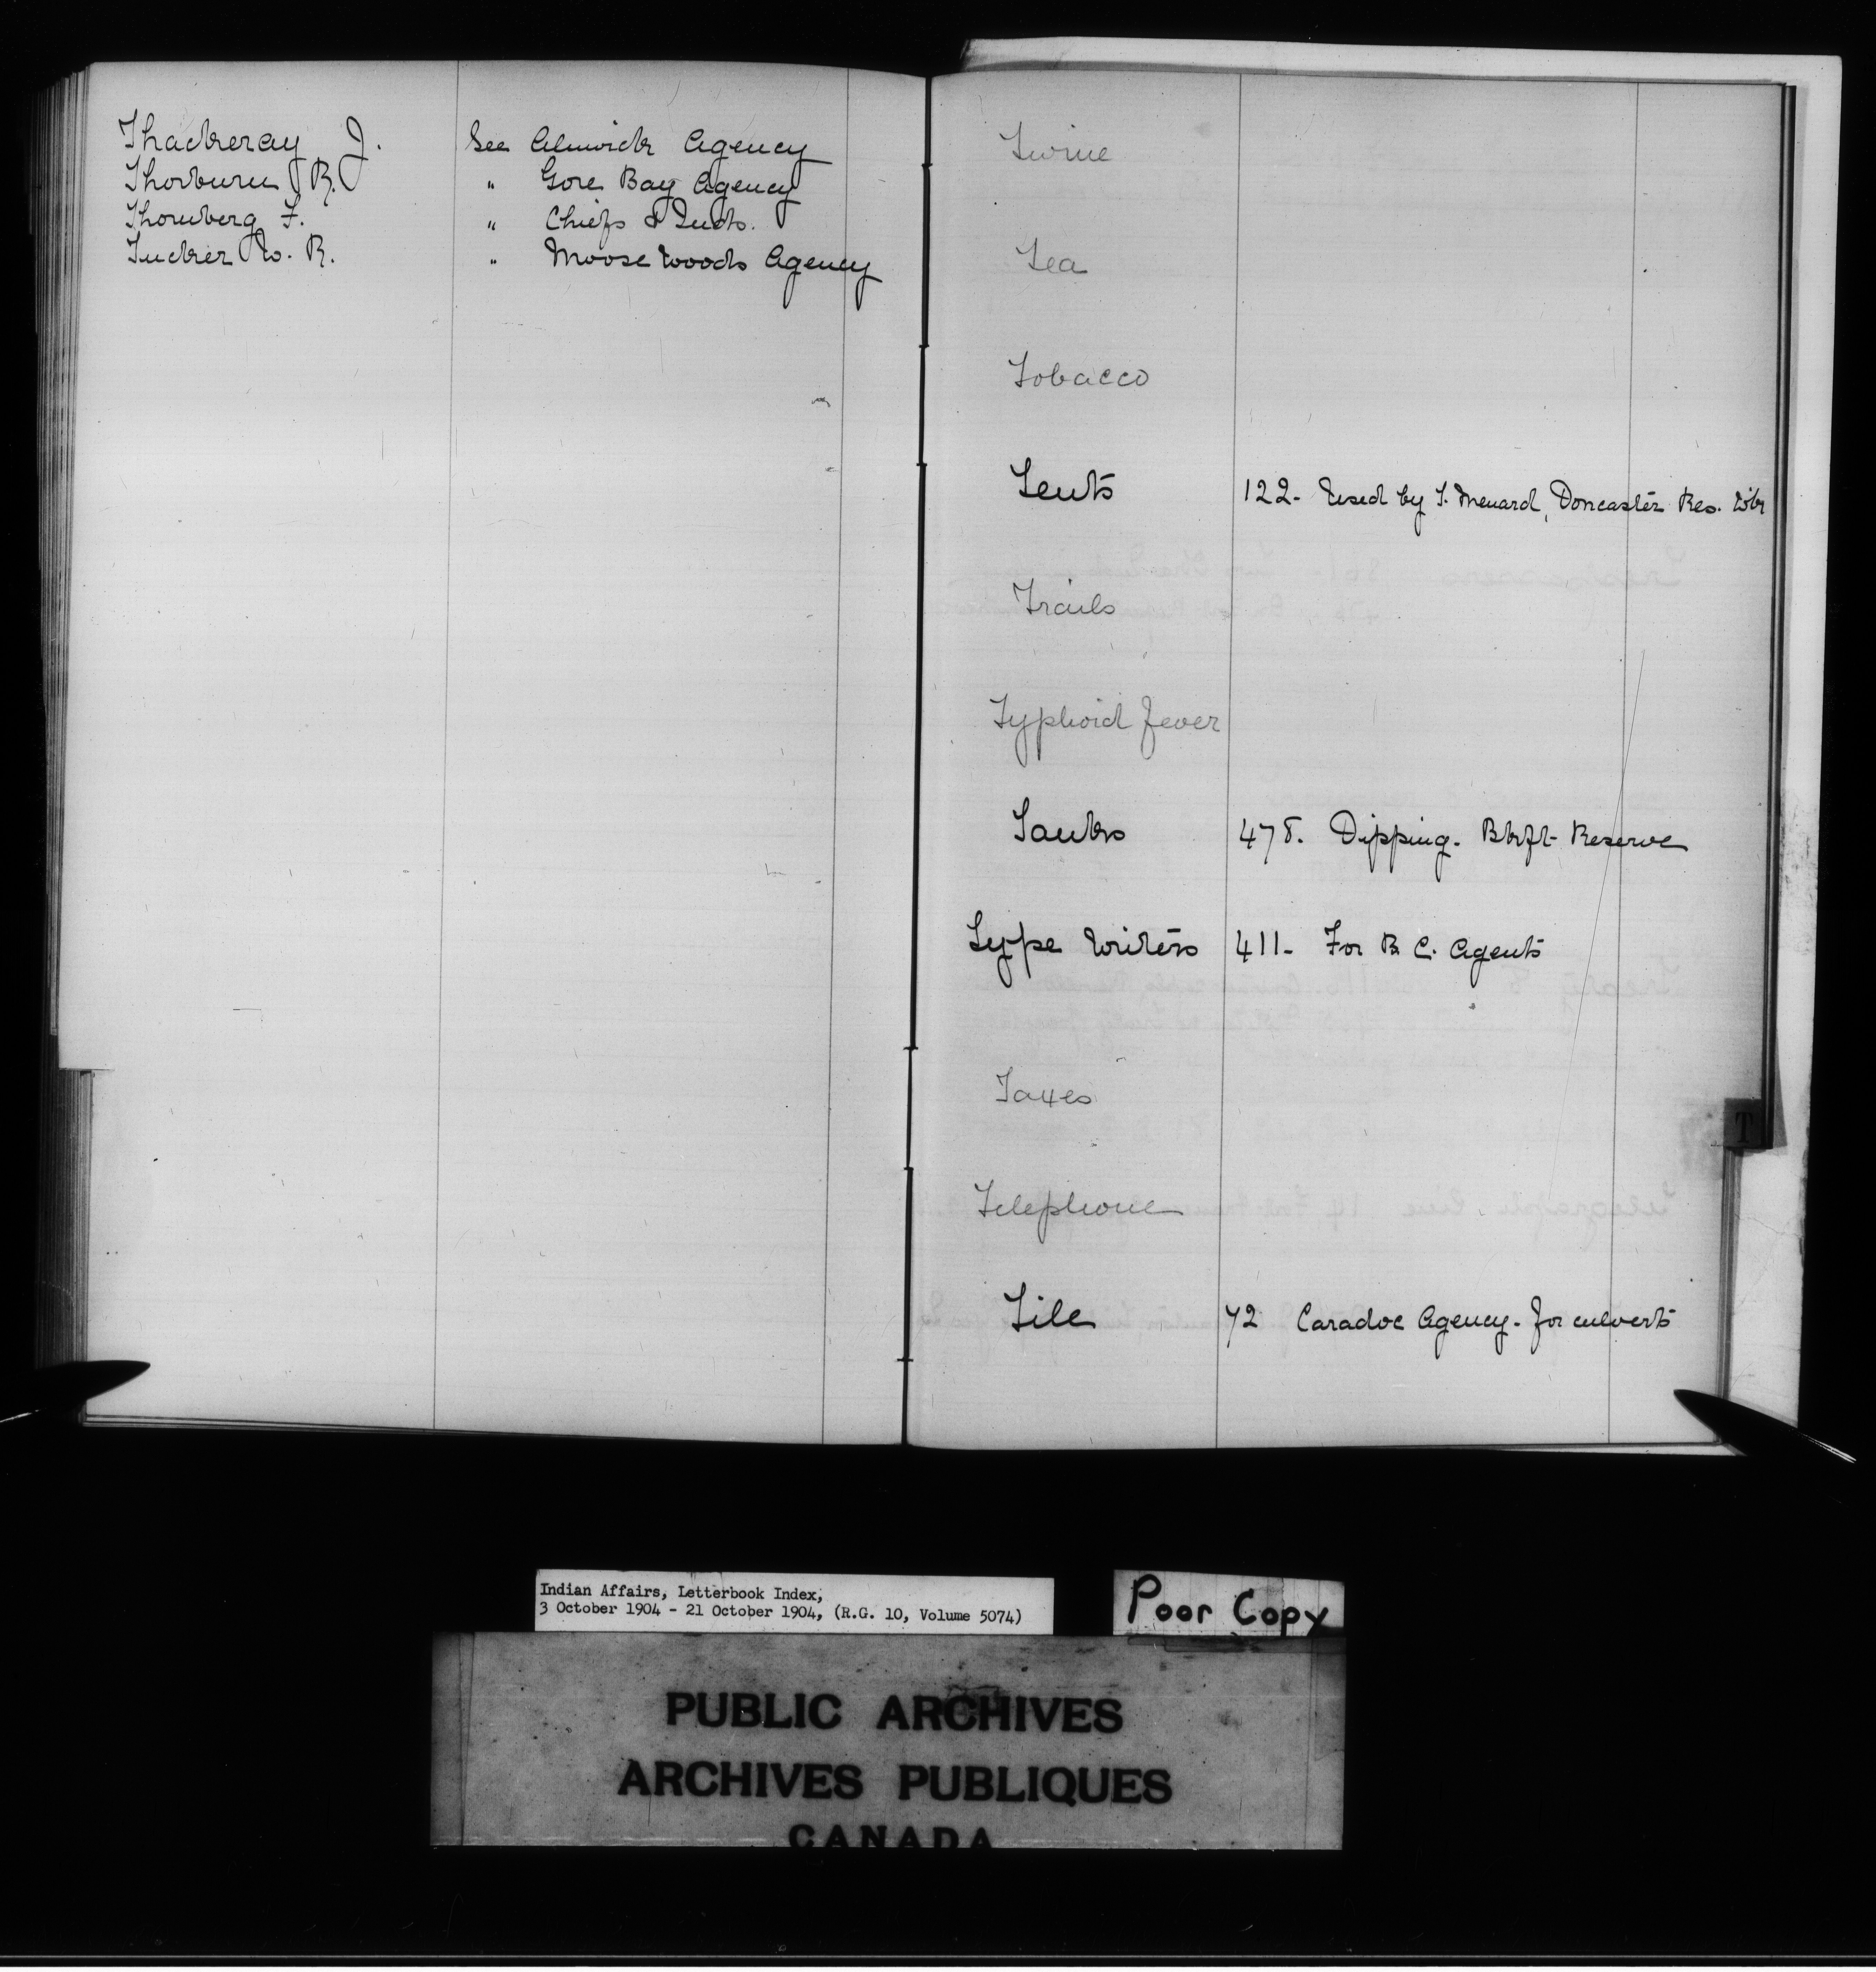 Thackeray J. See Alnwick Agency
Thorburn R. " Gore Bay Agency
Thornberg F. " Chiefs & Inds.
Tucker W. R. " Moose Woods Agency
Twine
Tea
Tobacco
Tents 122- Used by T. Menard, Doncaster Res.
Trails
Typhoid fever
Tanks 478. Dipping. Blkft Reserve
Type Writers 411- For B. C. Agents
Taxes
Telephone
Tile 72 Caradoc Agency- for culverts
T
Indian Affairs, Letterbook Index,
3 October 1904 - 21 October 1904, (R.G. 10, Volume 5074)
Poor Copy
PUBLIC ARCHIVES
ARCHIVES PUBLIQUES
CANADA